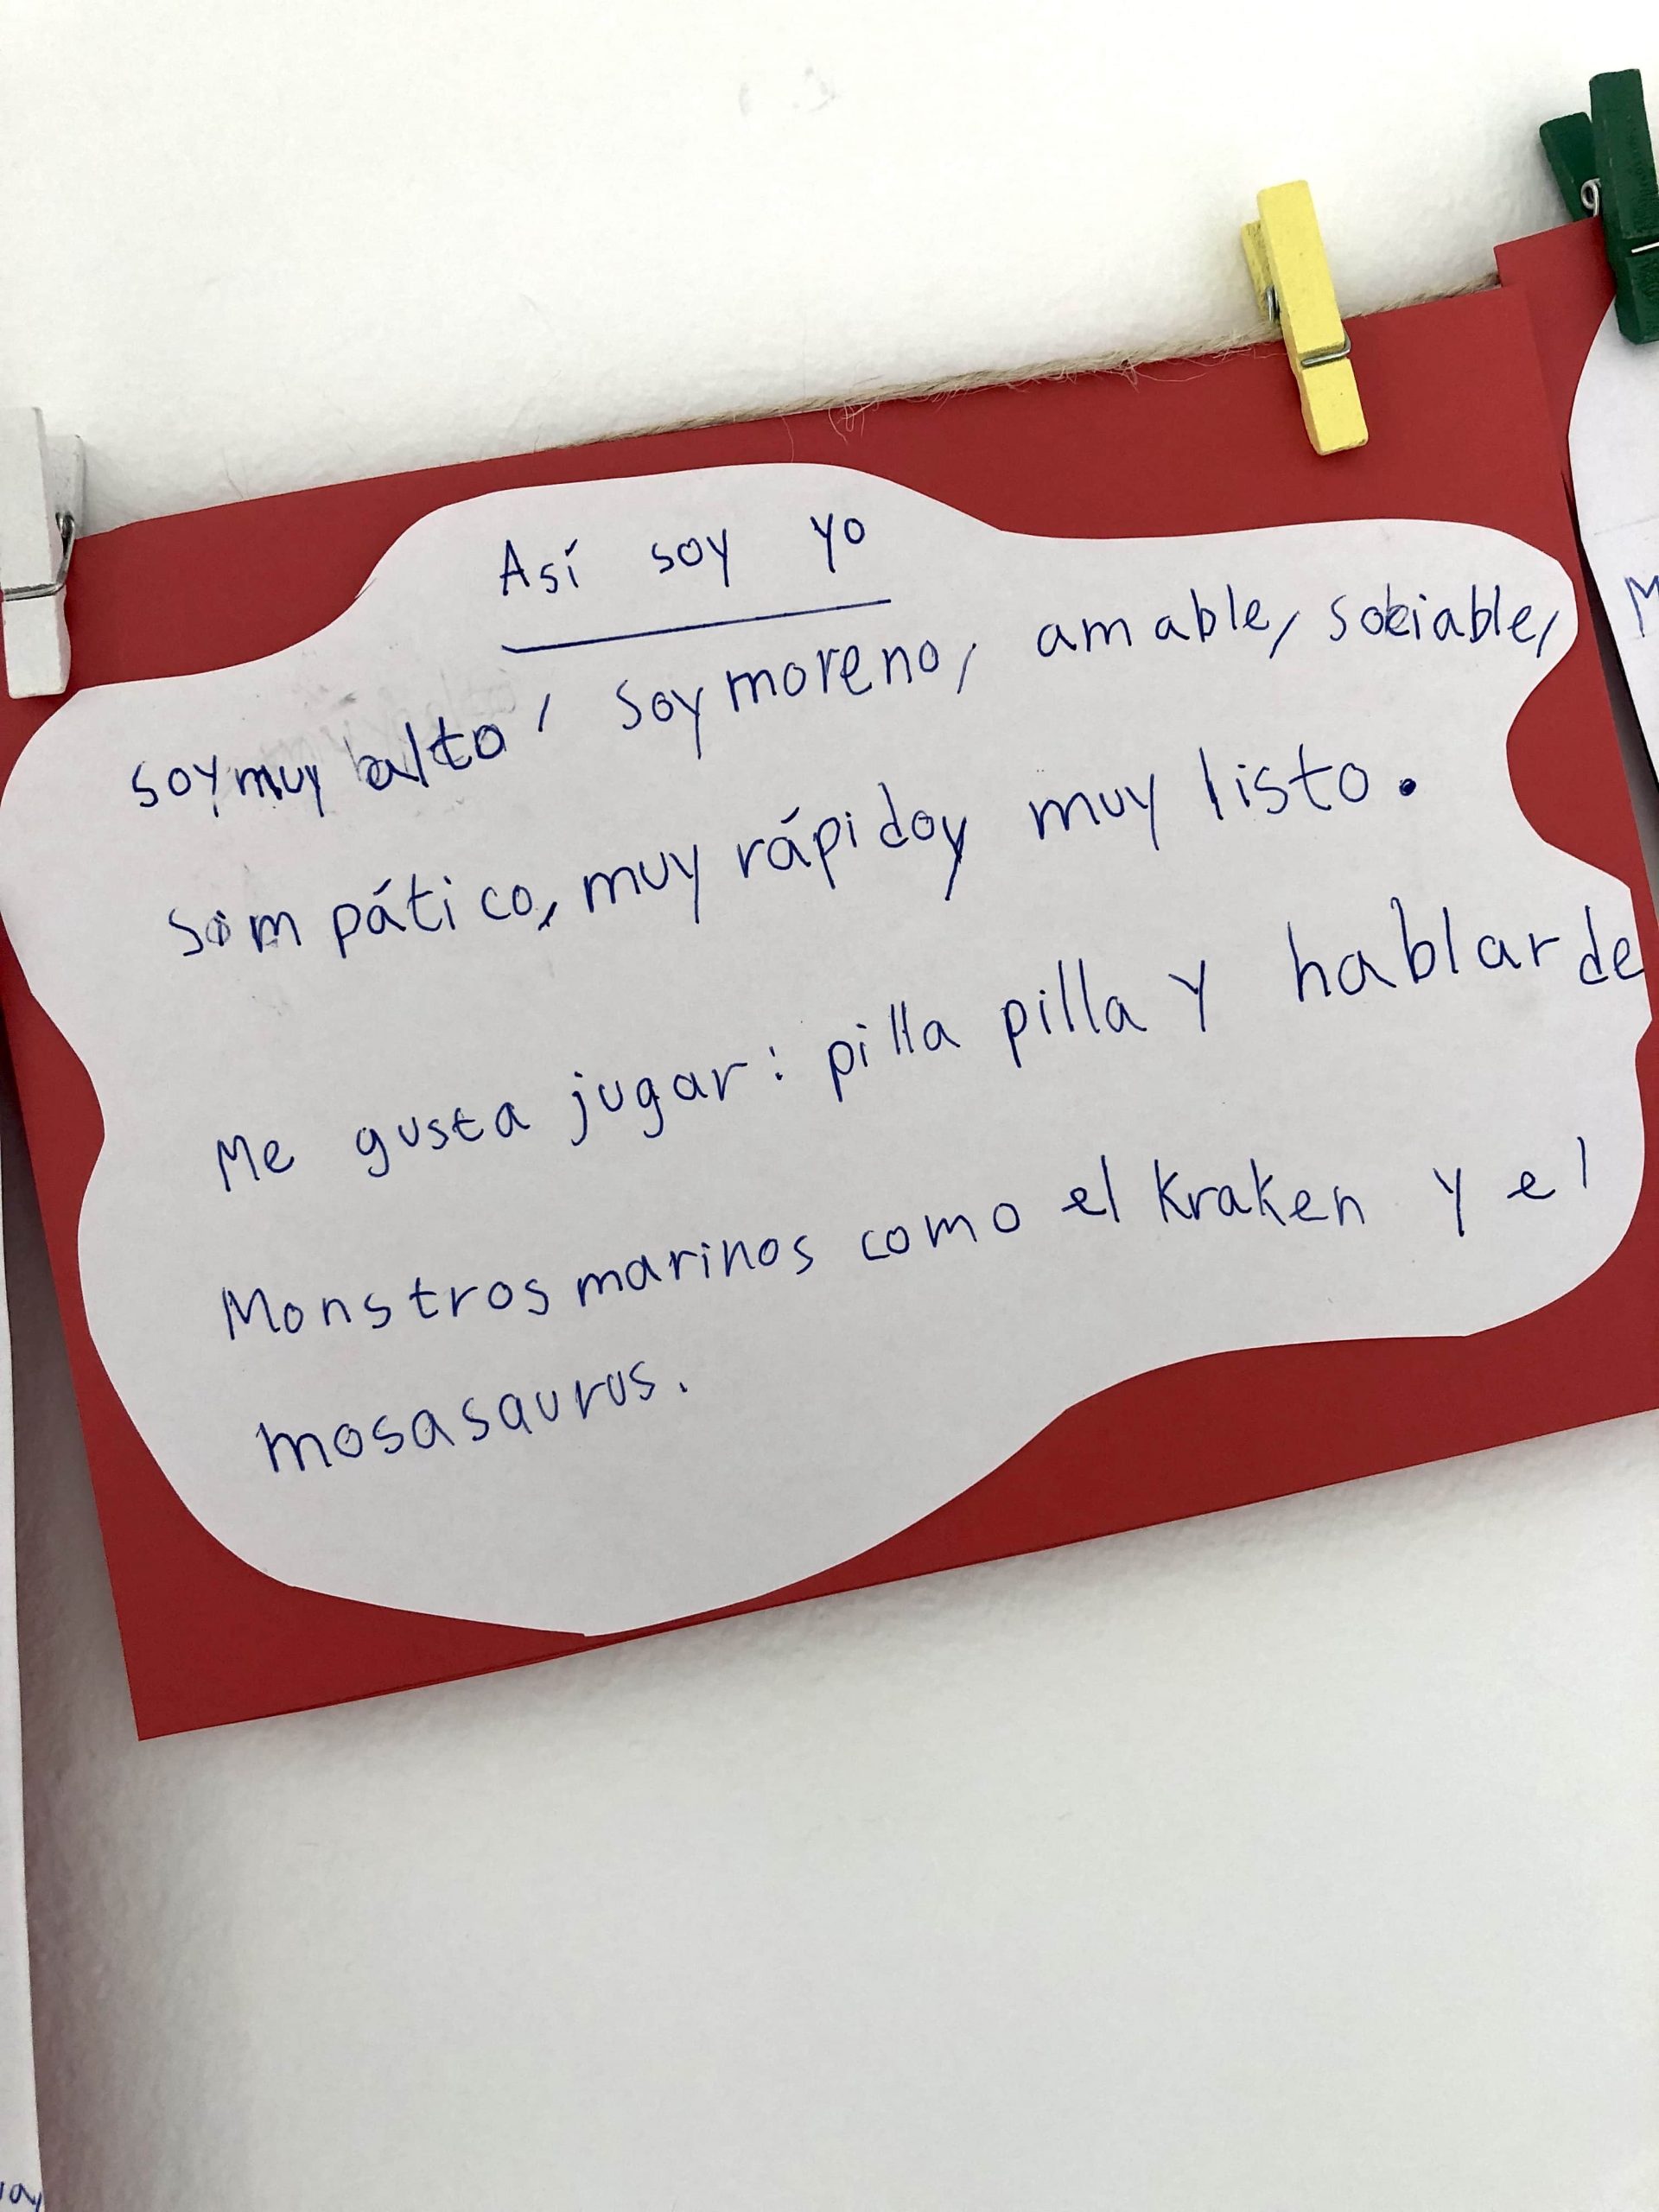 Así soy yo
soy muy alto, soy moreno, amable, sociable,
simpático, muy rápido y muy listo.
Me gusta jugar: pilla pilla y hablar de
Monstros marinos como el kraken y el
mosasaurus.
M